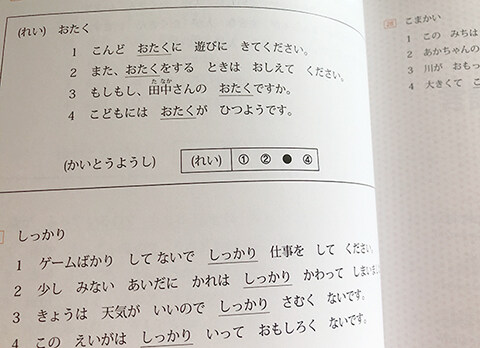 (れい) おたく
1 こんど おたくに 遊びに きてください。
2 また、おたくをする ときは おしえて ください。
たなか
3 もしもし、田中さんの おたくですか。
4 こどもには おたくが ひつようです。
(かいとうようし) (れい) ① ② ● ④
しっかり
1 ゲームばかり してないで しっかり 仕事を して ください。
2 少し みない あいだに かれは しっかり かわって
3 きょうは 天気が いいので しっかり さむく ないです。
4 この えいがは しっかり いって おもしろく ないです。
こまかい
1 この みちは
2 あかちゃんの
3 川が おもっ
4 大きくて